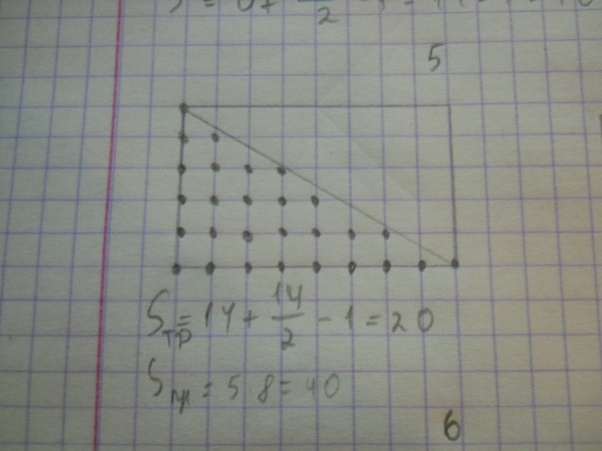 5
Sтр = 14 + 14/2 - 1 = 20
Sпр = 5 8 = 40
6